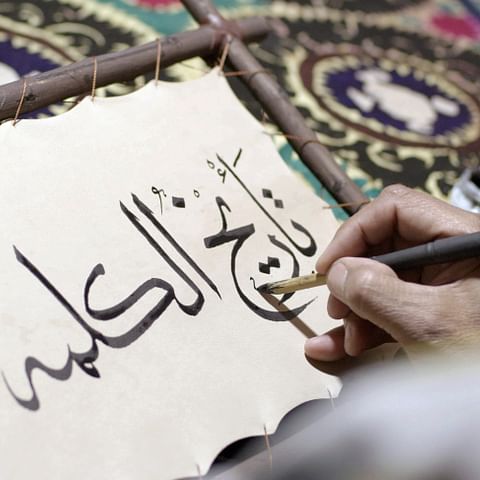 تاريخ الكلمه